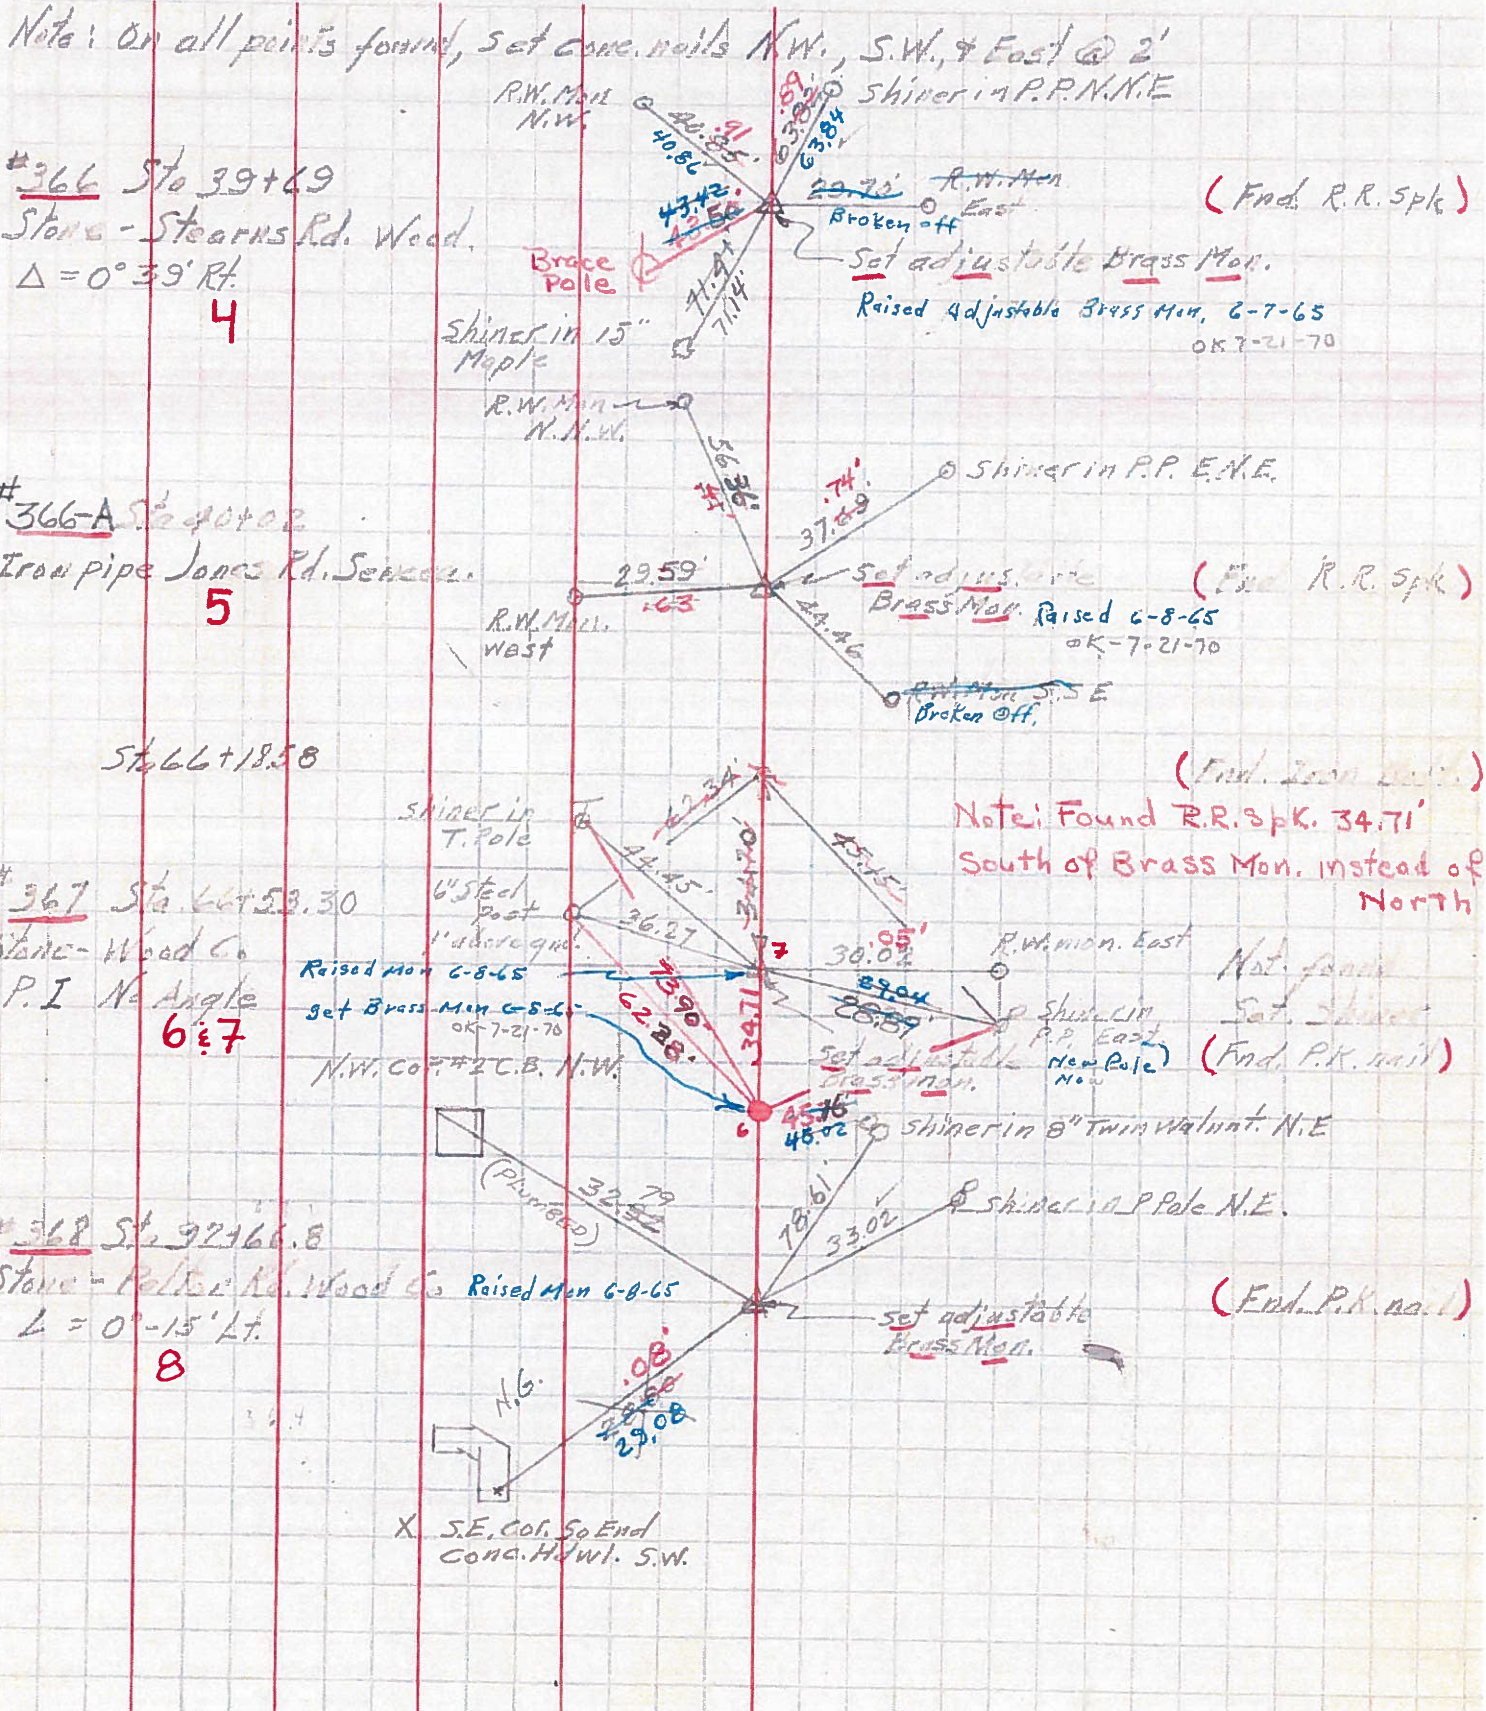 Note: On all points found, set conc. nails N.W., S.W., & East @ 2'
R.W. Mon
N.W.
.91
40.86
.89'
63.82'
63.84
Shiner in P.P. N.N.E
#366 Sta 39+69
Stone - Stearns Rd. Wood.
Δ = 0° 39' Rt.
4
43.42
29.72'
R.W. Mon
East
Broken off
(Fnd. R.R. Spk)
Brace
Pole
Set adjustable Brass Mon.
Raised Adjustable Brass Mon, 6-7-65
OK 7-21-70
71.14'
Shiner in 15"
Maple
R.W. Mon
N.N.W.
56.36'
Shiner in P.P. E.N.E.
.74'
37.69
#366-A Sta 40+02
Iron pipe Jones Rd. Seneca.
5
29.59'
.63
R.W. Mon.
West
Set adjustable
Brass Mon. Raised 6-8-65
OK-7-21-70
(Fnd R.R. Spk)
44.46
R.W. Mon S.S E
Broken Off.
Sta 66+18.58
(Fnd. Iron)
Note: Found R.R. Spk. 34.71'
South of Brass Mon. instead of
North
62.34'
34.70'
45.15'
Shiner in
T. Pole
44.45'
6" Steel
Post
1' above gnd.
36.27
#367 Sta. 66+53.30
Stone - Wood Co
P.I No Angle
6 & 7
Raised Mon 6-8-65
Set Brass Mon 6-8-65
OK-7-21-70
7
.05'
30.02
R.W. mon. East
Not found
29.04
28.89'
Shiner in
P.P. East.
New Pole
Now
Set Shiner
(Fnd. P.K. nail)
73.90'
62.28'
34.71
Set adjustable
Brass mon.
N.W. Cor. #2 C.B. N.W.
6
45.16'
45.02
Shiner in 8" Twin Walnut. N.E
(Plumbed)
32.52
79
78.61'
33.02
Shiner in P Pole N.E.
#368 Sta 92+66.8
Stone - Pelton Rd. Wood Co
∠ = 0°-15' Lt.
8
Raised Mon 6-8-65
Set adjustable
Brass Mon.
(Fnd. P.K. nail)
.08'
29.08
N.G.
X S.E. Cor. So End
Conc. Hdwl. S.W.